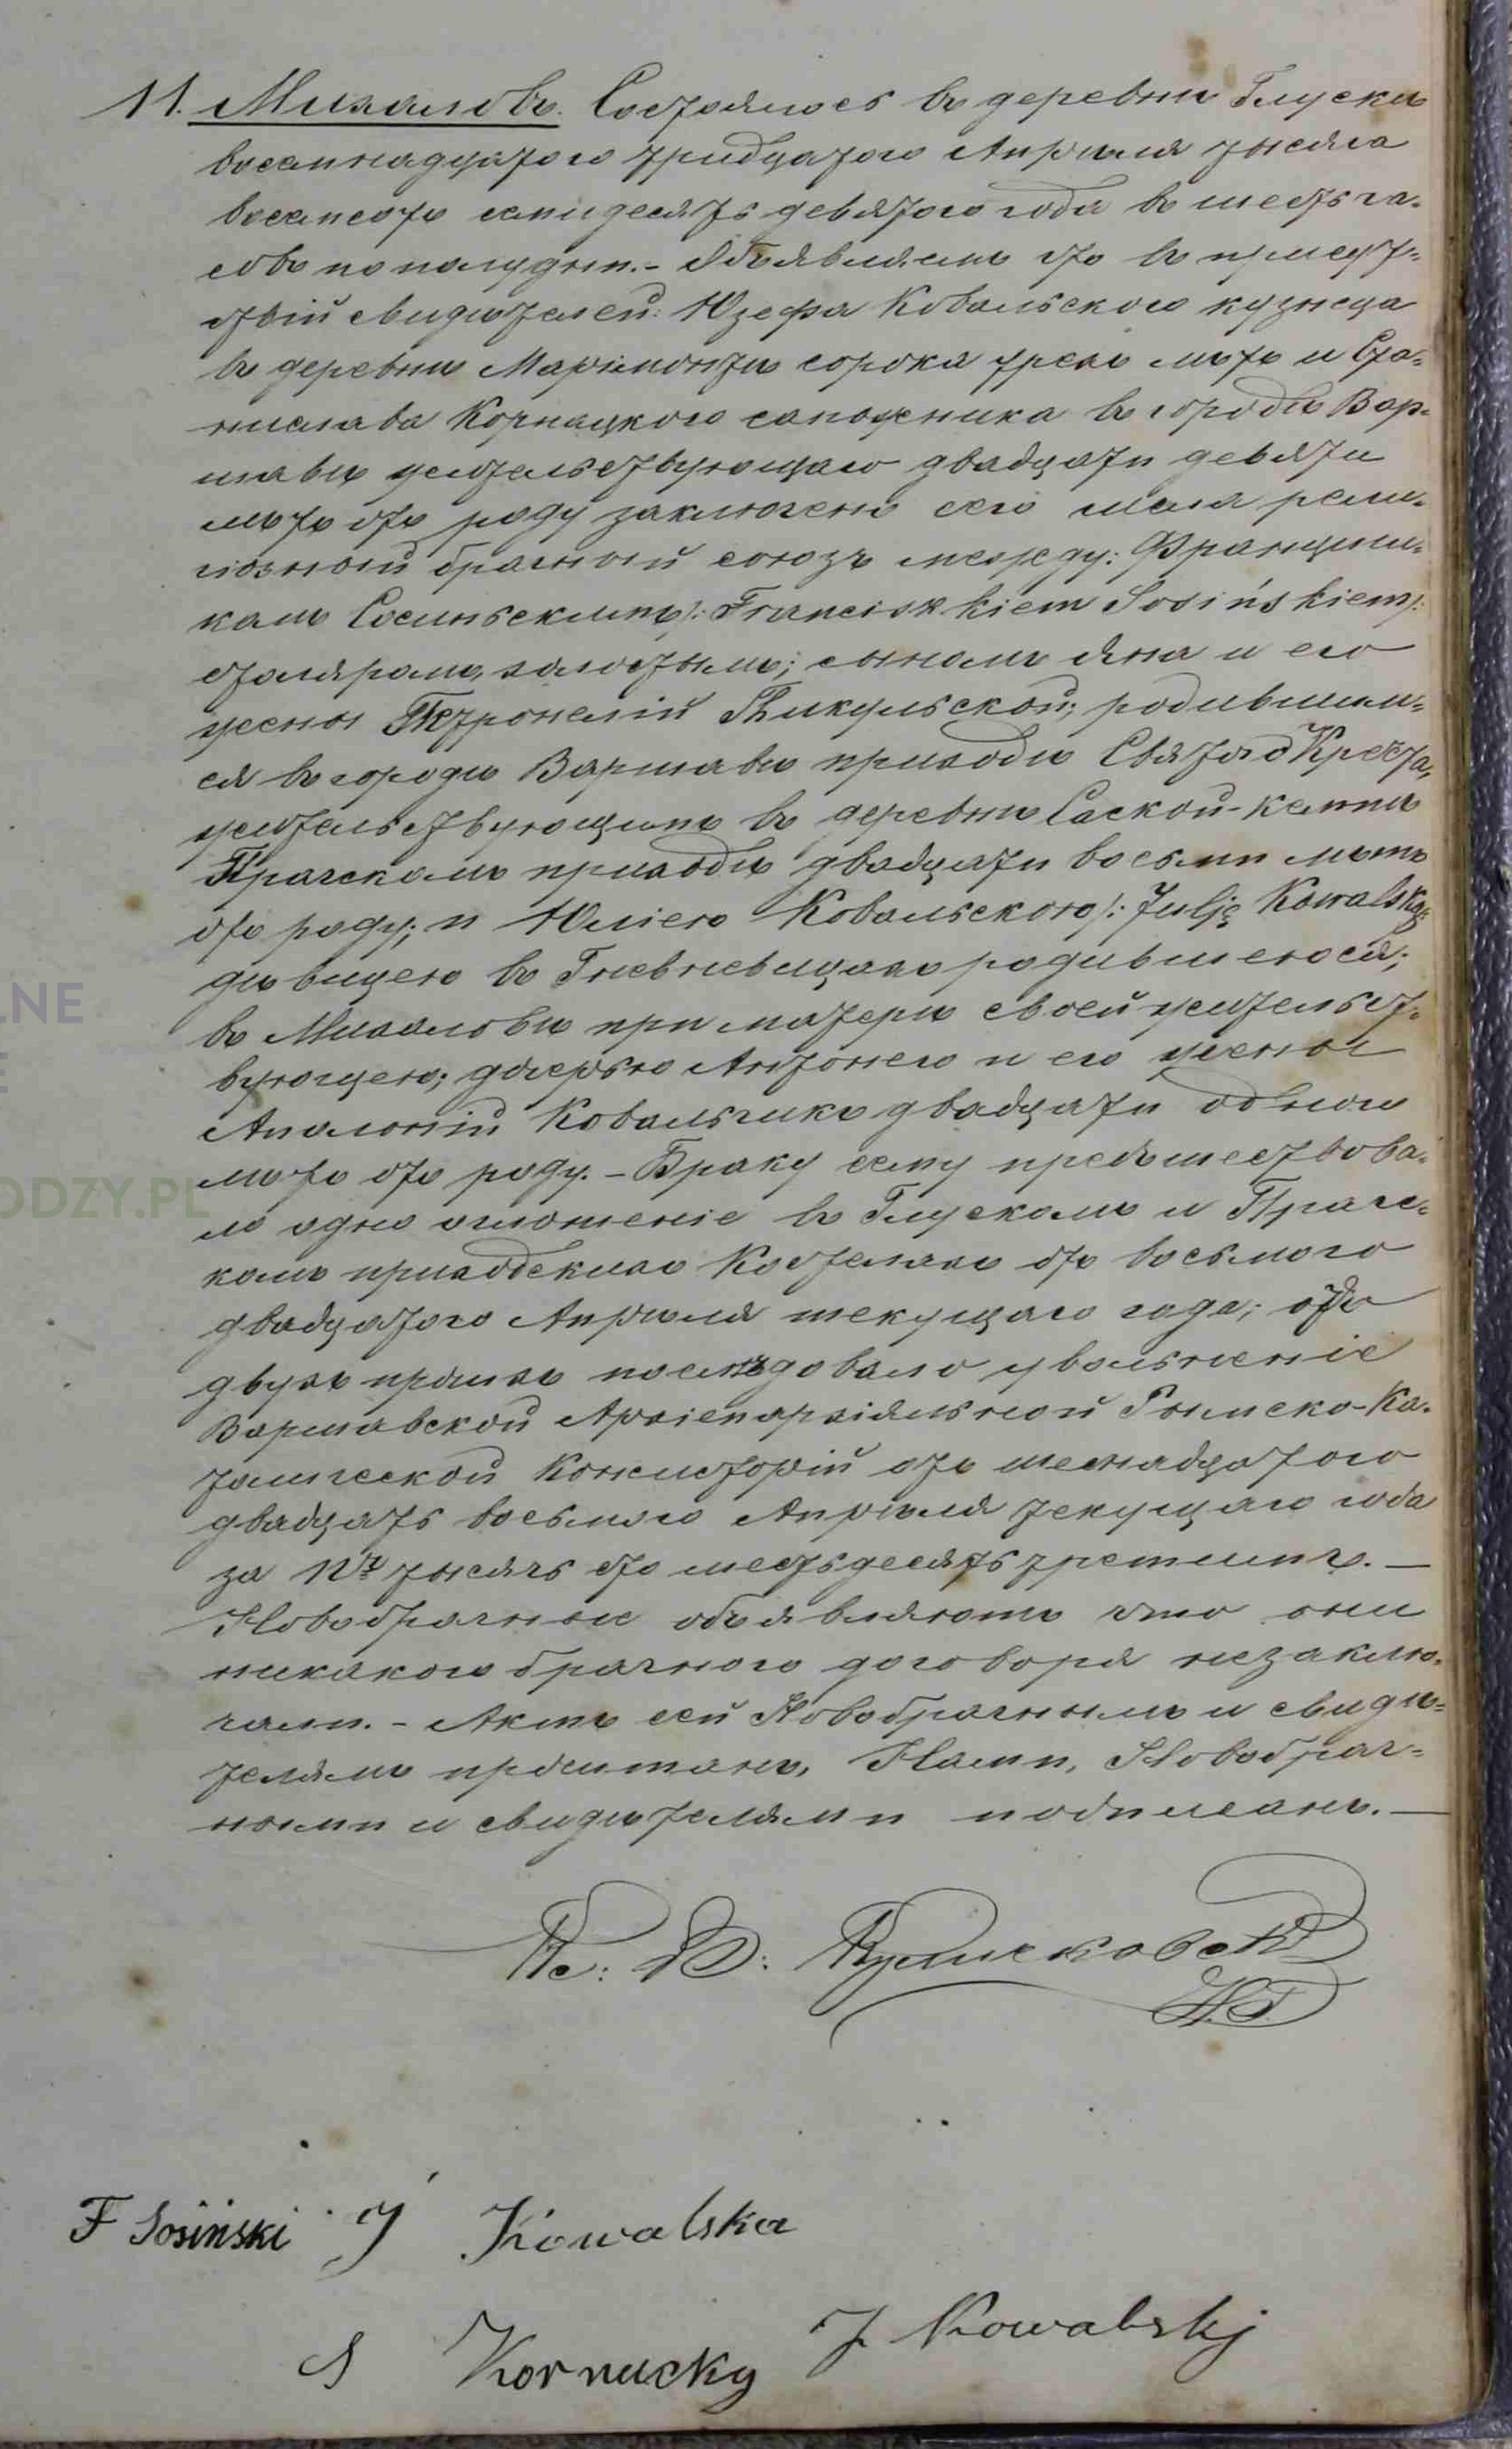 11. Михаловъ. Состоялось въ деревни Глуски
восемнадцатого тридцатого Апрѣля тысяча
восемсотъ семидесятъ девятого года въ шесть ча-
совъ по полудни. - Объявляемъ что въ присут-
ствій свидѣтелей: Юзефа Ковальского кузнеца
въ деревни Маримонтѣ сорока трехъ лѣтъ и Ста-
нислава Корнацкого сапожника въ городѣ Вар-
шавѣ жительствующаго двадцати девяти
лѣтъ отъ роду заключенъ сего числа рели-
гіозный брачный союзъ между: Францишъ-
комъ Сосиньскимъ /: Franciszkiem Sosińskiem /:
столяромъ, холостымъ; сыномъ Яна и его
жены Петронелій Пикульской; родившим-
ся въ городѣ Варшавѣ приходѣ Святого Креста,
жительствующимъ въ деревни Саской-Кемпѣ
Прагскомъ приходѣ двадцати восьми лѣтъ
отъ роду; и Юліею Ковальскою /: Julją Kowalską
дѣвицею въ Гнѣвнѣвицахъ родившеюся;
въ Михаловѣ при матерѣ своей жительст-
вующею; дочерью Антонего и его жены
Аполоній Ковальчикъ двадцати одного
лѣтъ отъ роду. - Браку сему предшествова-
ло одно оглошеніе въ Глускомъ и Прагс-
комъ приходскихъ Костелахъ отъ восьмого
двадцатого Апрѣля текущаго года; отъ
двухъ прошлъ послѣдовало увольненіе
Варшавской Архіепархіяльной Римско-Ка-
толической Консисторій отъ шеснадцатого
двадцать восьмого Апрѣля текущаго года
за Nr тысячъ сто шестьдесятъ третимъ. —
Новобрачные объявляютъ что они
никакого брачного договора незаклю-
чали. - Актъ сей Новобрачнымъ и свидѣ-
телямъ прочитанъ, Нами, Новобрач-
ными и свидѣтелями подписанъ. —
F Sosinski J Kowalska
S Kornacky J Kowalskj
LNE
E
ODZY.PL